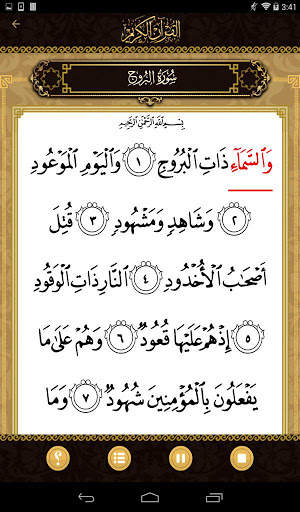 3:41
القرآن الكريم
سورة البروج
بِسْمِ اللَّهِ الرَّحْمَٰنِ الرَّحِيمِ
وَٱلسَّمَآءِ ذَاتِ ٱلْبُرُوجِ ١ وَٱلْيَوْمِ ٱلْمَوْعُودِ
٢ وَشَاهِدٍ وَمَشْهُودٍ ٣ قُتِلَ
أَصْحَٰبُ ٱلْأُخْدُودِ ٤ ٱلنَّارِ ذَاتِ ٱلْوَقُودِ
٥ إِذْ هُمْ عَلَيْهَا قُعُودٌ ٦ وَهُمْ عَلَىٰ مَا
يَفْعَلُونَ بِٱلْمُؤْمِنِينَ شُهُودٌ ٧ وَمَا
؟